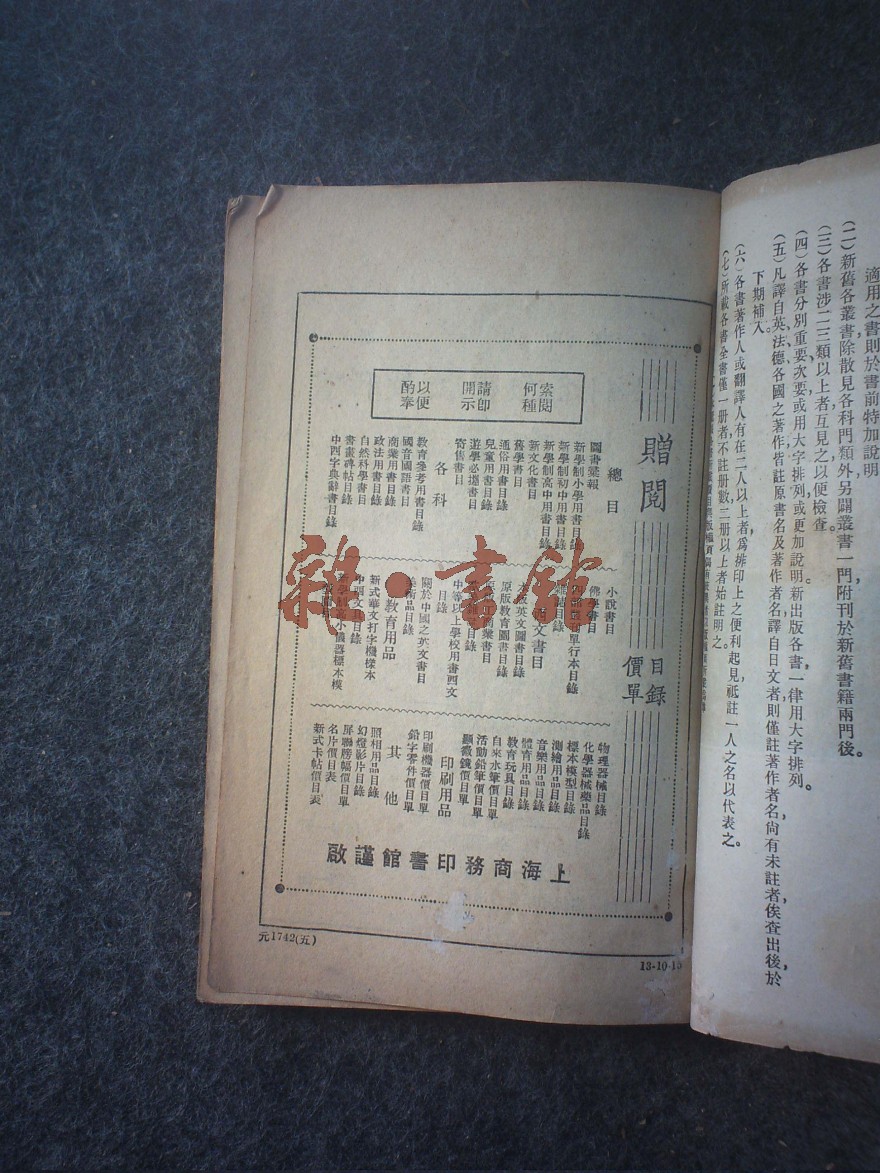 適用之書則於書前特加說明
(二)新舊各叢書除散見各科門類外另闢叢書一門附刊於新舊書籍兩門後。
(三)各書涉二三類以上者互見之以便檢查。
(四)各書分別重要次要或用大字排列或更加說明。新出版各書一律用大字排列。
(五)凡譯自英、法、德各國之著作皆註原書名及著作者名譯自日文者則僅註著作者名尙有未註者俟查出後於
下期補入。
(六)各書著作人或翻譯人有在二人以上者爲排印上之便利起見祇註一人之名以代表之。
(七)所載各書全書僅一册者不註册數二册以上者始註明之。
贈閱
目錄
價單
索閱
何種
請即
開示
以便
酌奉
總目
圖書彙報
新學制小學用書目錄
新學制初中用書目錄
新學制高中用書目錄
新文化書目
舊學書目
通俗用書目錄
兒童用書目錄
遊學必攜書目
寄售書目
各科
教育參考用書目錄
國音國語書目
商業用書目錄
政法用書目錄
自然科學書目
書畫碑帖目錄
中西字典辭書目錄
小說書目
佛學書目
單行本目錄
文書目
英文圖書目錄
原版教育圖書目錄
業書目
目錄
中等以上學校用書西文
目錄
關於中國之英文書目
美術品目錄
教育用品
新式華文打字機樣本
中國文具目錄
小儀器標本模
物理器械目錄
化學器械藥品目錄
標本模型目錄
測繪用品目錄
音樂用品目錄
體育用品目錄
教育玩具目錄
自來水筆價目單
活動鉛筆價目單
顯微鏡價目單
印刷用品
印刷機器價目單
鉛字零件價目單
其他
照相用品目錄
幻燈影片目錄
屏聯榜幅價目單
名片價目表
新式卡帖價目表
上海商務印書館謹啟
元1742(五)
13-10-15
雜·書館